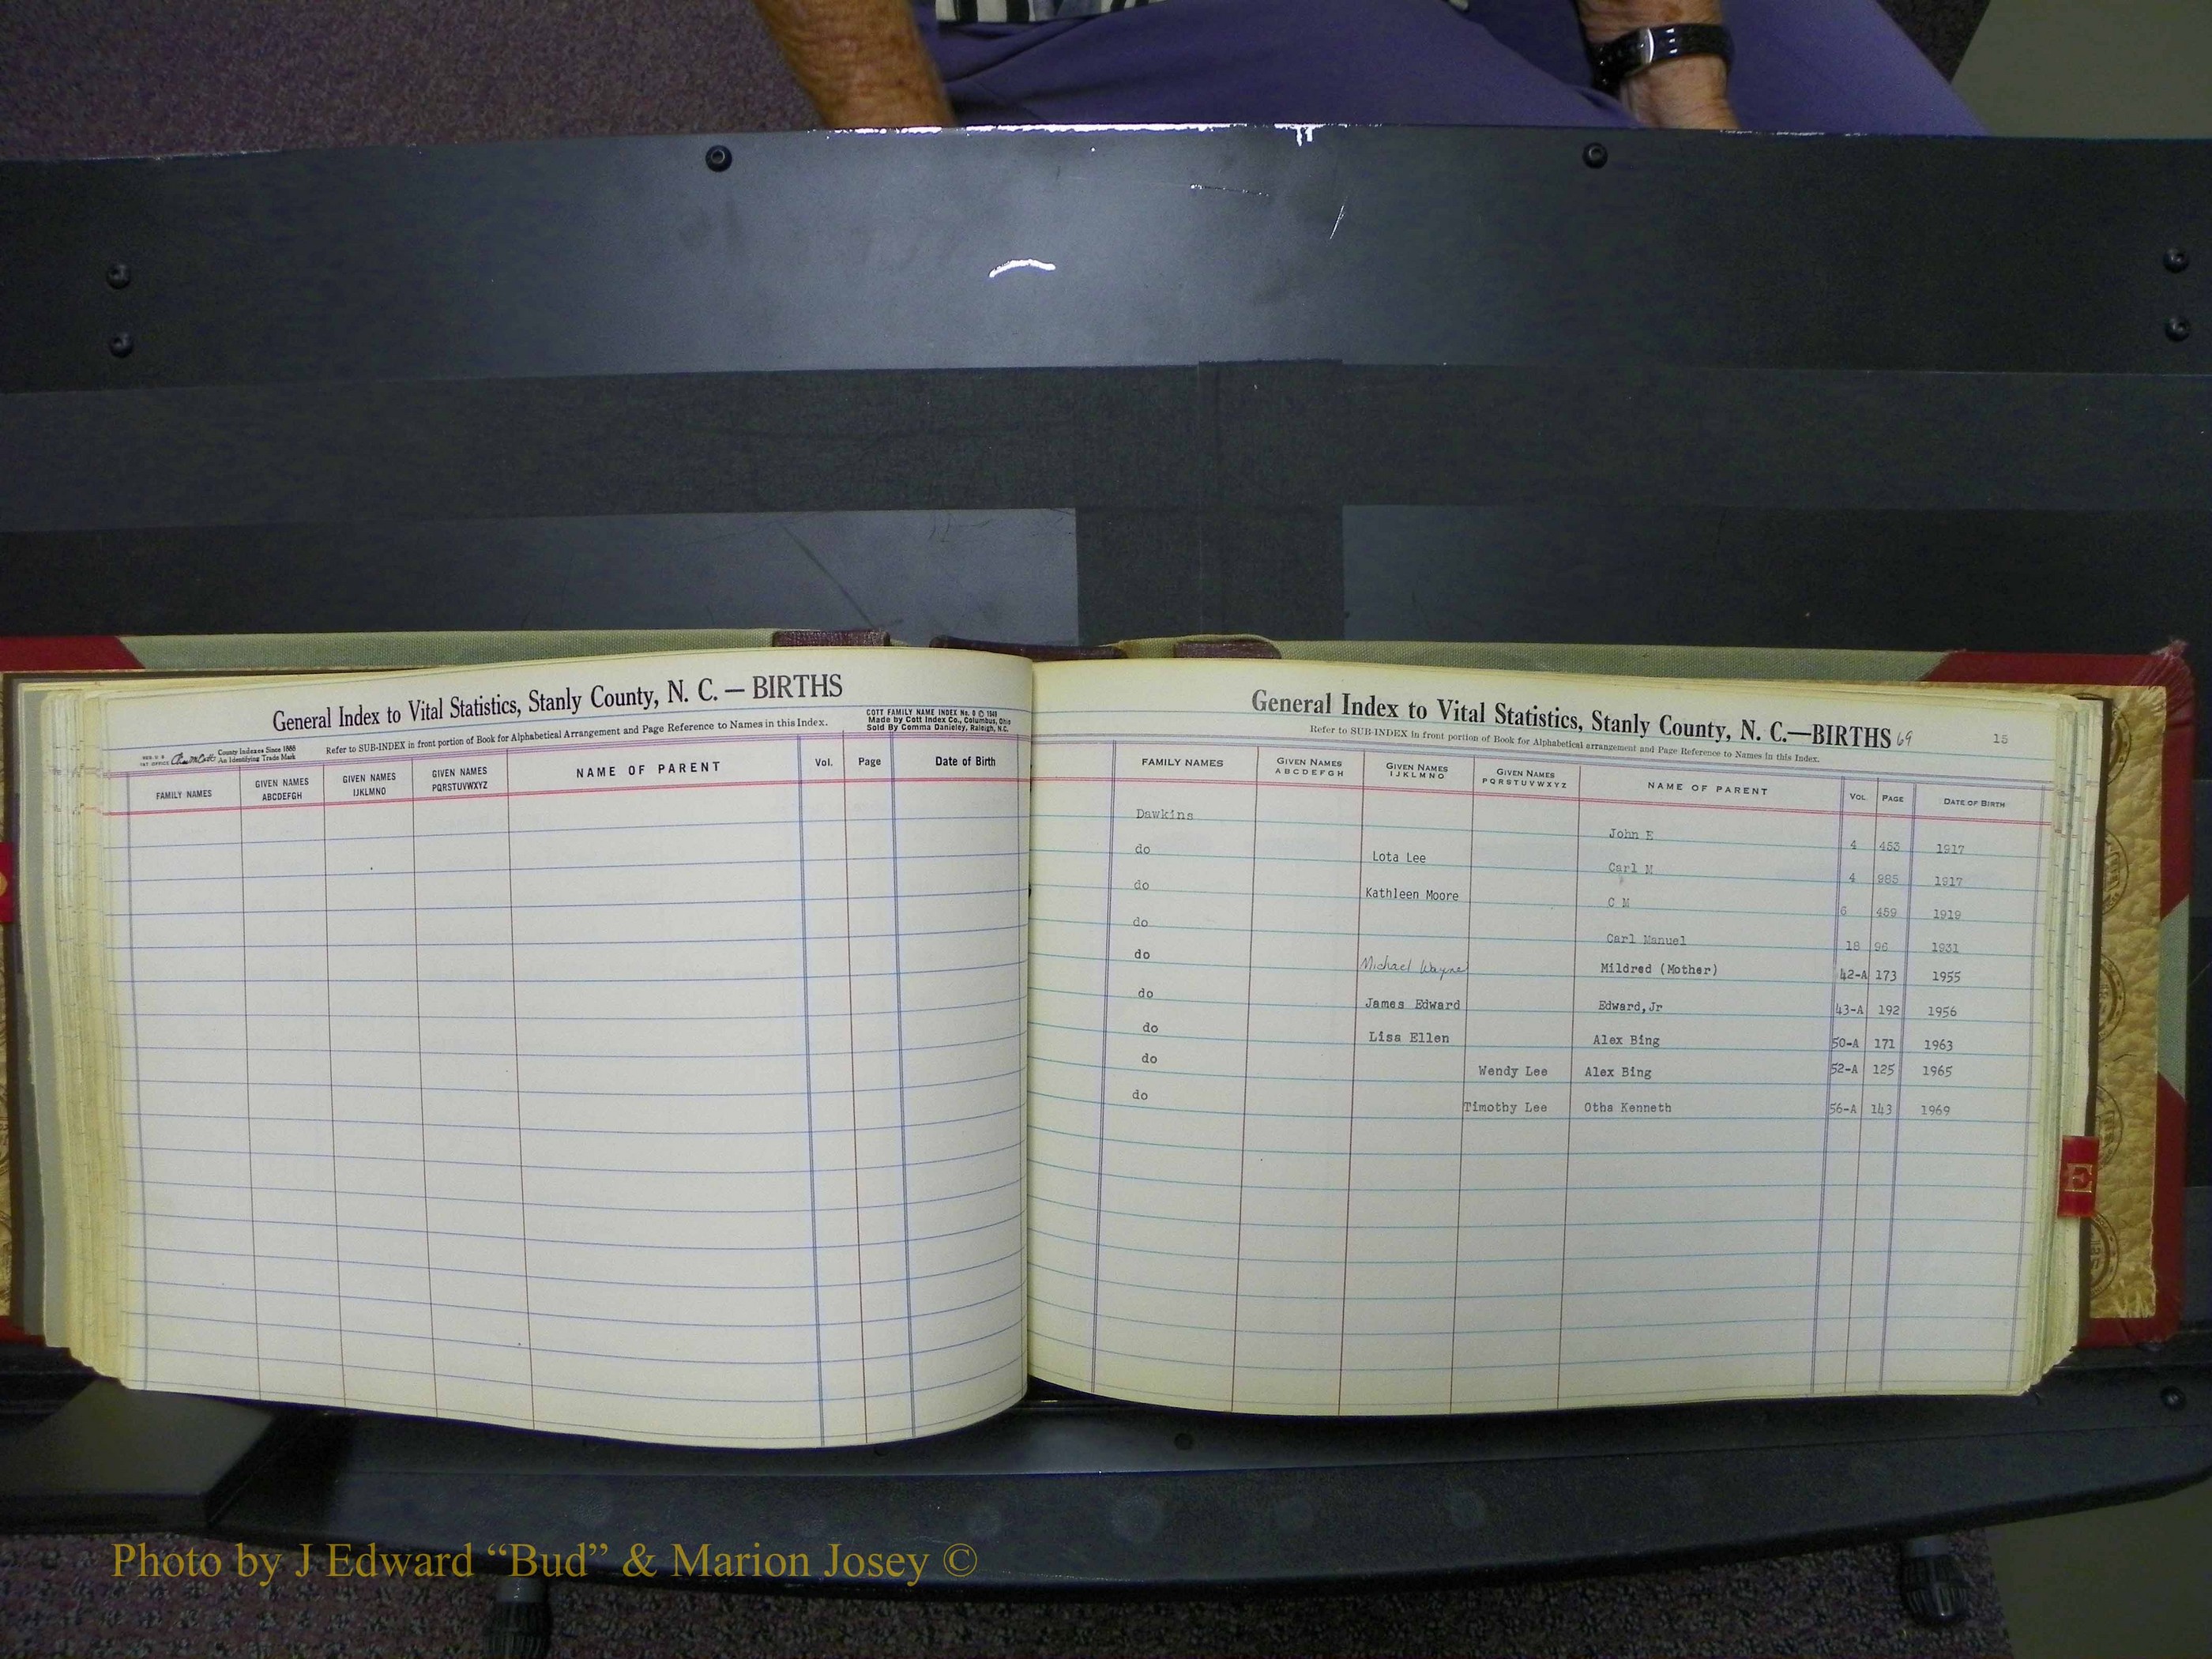 General Index to Vital Statistics, Stanly County, N. C. — BIRTHS
COTT FAMILY NAME INDEX No. 9 © 1949
Made by Cott Index Co., Columbus, Ohio
Sold By Comma Danieley, Raleigh, N.C.
REG. U S
PAT. OFFICE
County Indexes Since 1888
An Identifying Trade Mark
Refer to SUB-INDEX in front portion of Book for Alphabetical Arrangement and Page Reference to Names in this Index.
FAMILY NAMES GIVEN NAMES ABCDEFGH GIVEN NAMES IJKLMNO GIVEN NAMES PQRSTUVWXYZ NAME OF PARENT Vol. Page Date of Birth
General Index to Vital Statistics, Stanly County, N. C.—BIRTHS 69 15
Refer to SUB-INDEX in front portion of Book for Alphabetical arrangement and Page Reference to Names in this Index.
FAMILY NAMES GIVEN NAMES ABCDEFGH GIVEN NAMES IJKLMNO GIVEN NAMES PQRSTUVWXYZ NAME OF PARENT VOL. PAGE DATE OF BIRTH
Dawkins John E 4 453 1917
do Lota Lee Carl M 4 985 1917
do Kathleen Moore C M 6 459 1919
do Carl Manuel 18 96 1931
do Michael Wayne Mildred (Mother) 42-A 173 1955
do James Edward Edward,Jr 43-A 192 1956
do Lisa Ellen Alex Bing 50-A 171 1963
do Wendy Lee Alex Bing 52-A 125 1965
do Timothy Lee Otha Kenneth 56-A 143 1969
E
Photo by J Edward “Bud” & Marion Josey ©